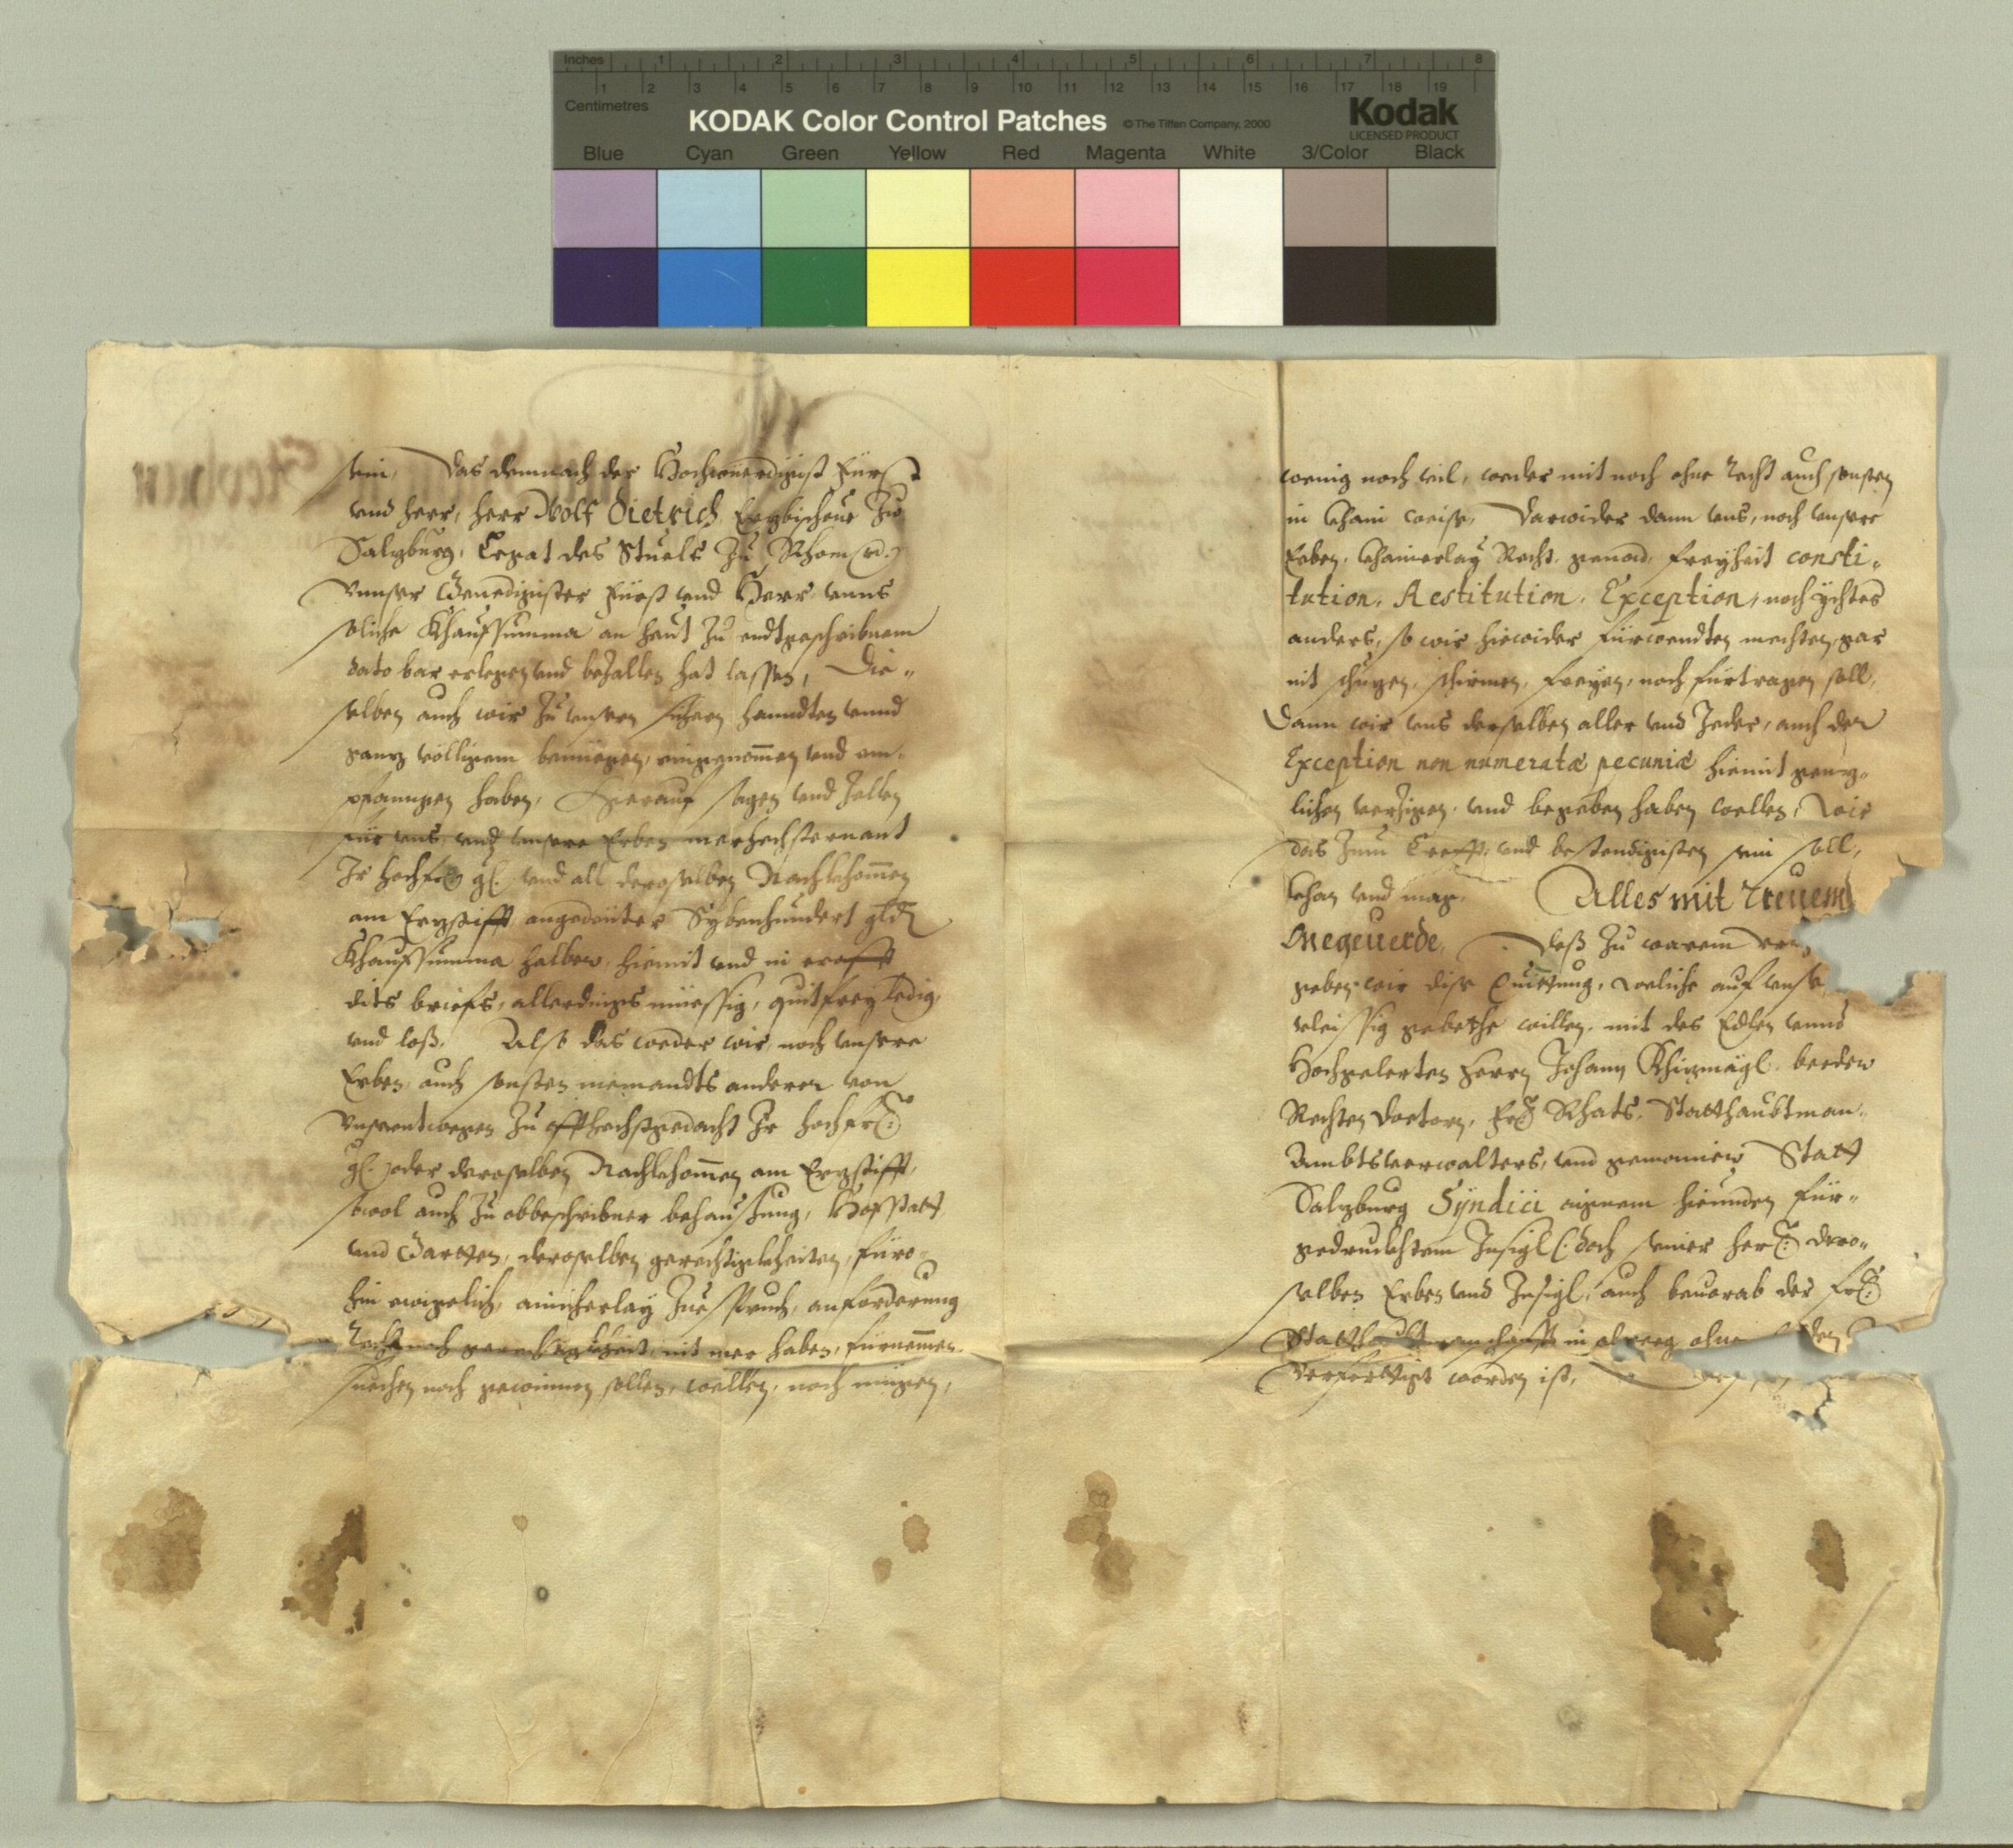 Inches 1 2 3 4 5 6 7 8
Centimetres 1 2 3 4 5 6 7 8 9 10 11 12 13 14 15 16 17 18 19
KODAK Color Control Patches © The Tiffen Company, 2000 Kodak
LICENSED PRODUCT
Blue Cyan Green Yellow Red Magenta White 3/Color Black
sein, Das demnach der Hochwuerdigist Fürst
und herr, herr Wolf Dietrich Erzbischoue zu
Salzburg, Legat des Stuels zu Rhom
Unnser Genedigister Fürst und Herr unns
soliche Khaufsumma an heut zu endtgeschribnem
dato bar erlegen und bezallen hat lassen, Die-
selben auch wir zu unsern sichern hanndten unnd
ganz völligem benüegen, eingenomen und em-
pfanngen haben, Hierauf sagen und zellen
für uns und unsere Erben merhochsternant
Ir hochfr. gl. und all deroselben Nachkhomen
am Erzstifft angedeuter Sybenhundert gldn
Khaufsumma halben, hiemit und in crafft
dits briefs, allerdings müessig, quitfrey ledig,
und loß. Also das weder wir, noch unsere
Erben, auch sonsten niemandts anderer von
Unsernntwegen zu offthochstgedacht Ir hochfr.
gl. oder deroselben Nachkhomen am Erzstifft,
sowol auch zu obbeschribner behausung, Hofstatt
und Gartten, deroselben gerechtigkheiten, füro-
hin ewigclich, ainicherlay Zuespruch, anforderung
Recht noch gerechtigkheit, nit mer haben, fürnemen
suechen noch gewinnen sollen, wellen, noch mügen,
wenig noch vil, weder mit noch ohne Recht auch sonsten
in khain weise, Darwider dann uns, noch unsere
Erben, khainerlay Recht, genad, freyheit consti-
tution, Restitution, Exception, noch ychtes
anders, so wir hiewider fürwendten mechten, gar
nit schüzen, schirmen, freyen, noch fürtragen soll,
Dann wir uns derselben aller und Jeder, auch der
Exception non numeratæ pecuniæ hiemit genz-
lichen verzigen, und begeben haben wellen, Wie
das zum Crefft. und bestendigisten sein soll,
khan und mag. Alles mit Treuem
Ongeuerde, Deß zu warem
geben wir dise Quittung, Weliche auf unser
vleissig gebethe willen, mit des Edlen unnd
Hochgelerten herrn Johann Khirzmägl, beeder
Rechten Doctorn, Rhats, Statthaubtman-
Ambtsverwalters, und gemainer Statt
Salzburg Syndici aignem hieunden für-
gedruckhtem Insigl (: doch seiner her: dero-
selben Erben und Insigl, auch beuorab der fr:
in alweeg ohne
verferttigt worden ist,